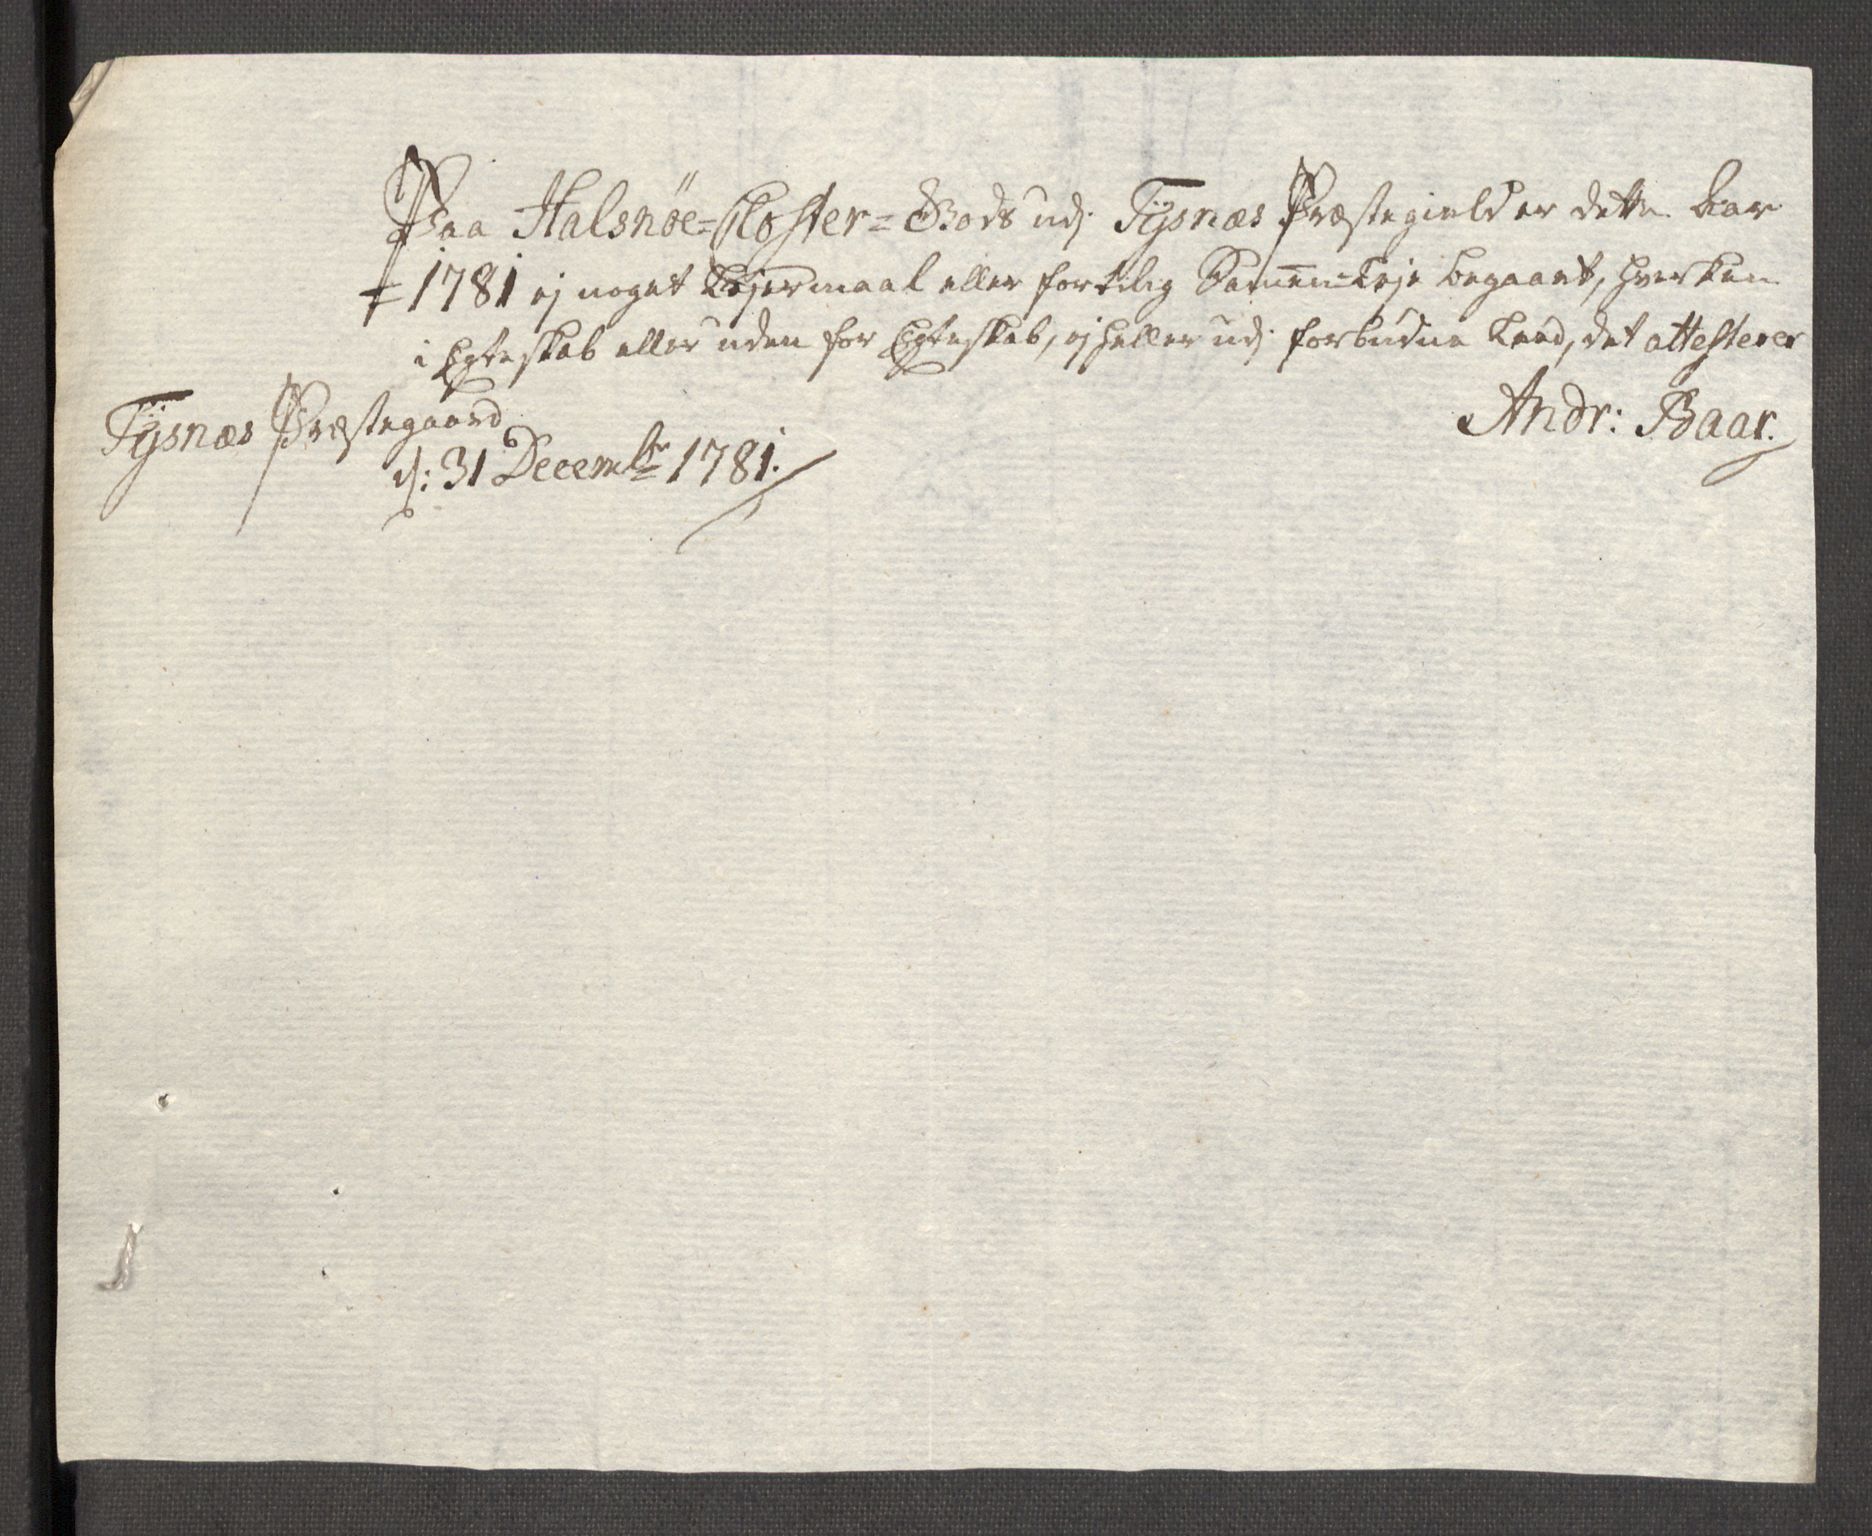 Paa Halsnöe=Closter=Gods udj Tysnæs Præstegield er dette Aar
1781 ej noget Lejermaal eller fortilig Sammen=Leje begaaet, hverken
i Egteskab eller uden for Egteskab, ej heller udj forbudne Leed, det attesterer
Andr: Baar.
Tysnæs Præstegaard
d: 31 Decembr 1781.